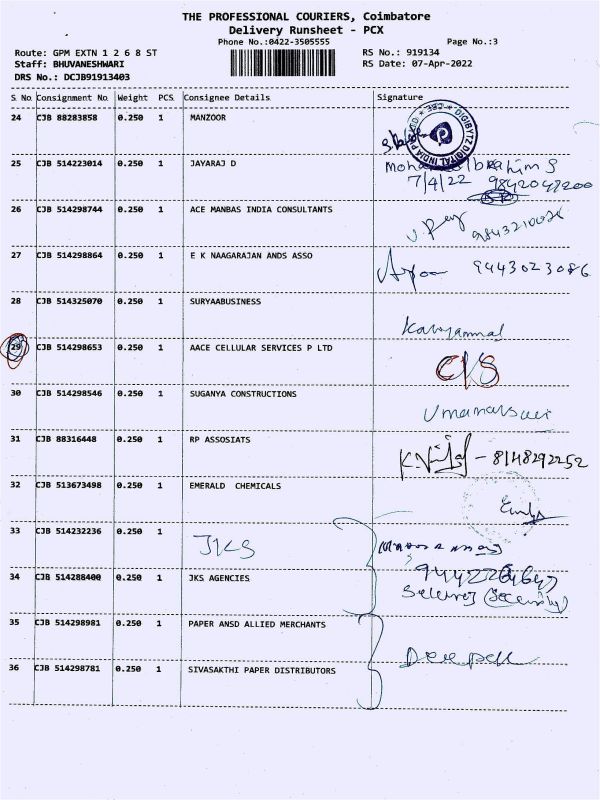 THE PROFESSIONAL COURIERS, Coimbatore
Delivery Runsheet - PCX
Phone No.:0422-3505555 Page No.:3
Route: GPM EXTN 1 2 6 8 ST RS No.: 919134
Staff: BHUVANESHWARI RS Date: 07-Apr-2022
DRS No.: DCJB91913403
S No Consignment No Weight PCS Consignee Details Signature
24 CJB 88283858 0.250 1 MANZOOR
DIGIBYTZ DIGITAL INDIA
25 CJB 514223014 0.250 1 JAYARAJ D
Ibrahim S
7/4/22 9842047200
26 CJB 514298744 0.250 1 ACE MANBAS INDIA CONSULTANTS
27 CJB 514298864 0.250 1 E K NAAGARAJAN ANDS ASSO
9443023086
28 CJB 514325070 0.250 1 SURYAABUSINESS
29 CJB 514298653 0.250 1 AACE CELLULAR SERVICES P LTD
30 CJB 514298546 0.250 1 SUGANYA CONSTRUCTIONS
31 CJB 88316448 0.250 1 RP ASSOSIATS
- 8148292252
32 CJB 513673498 0.250 1 EMERALD CHEMICALS
33 CJB 514232236 0.250 1 JKS
34 CJB 514288400 0.250 1 JKS AGENCIES
(Security)
35 CJB 514298981 0.250 1 PAPER ANSD ALLIED MERCHANTS
36 CJB 514298781 0.250 1 SIVASAKTHI PAPER DISTRIBUTORS